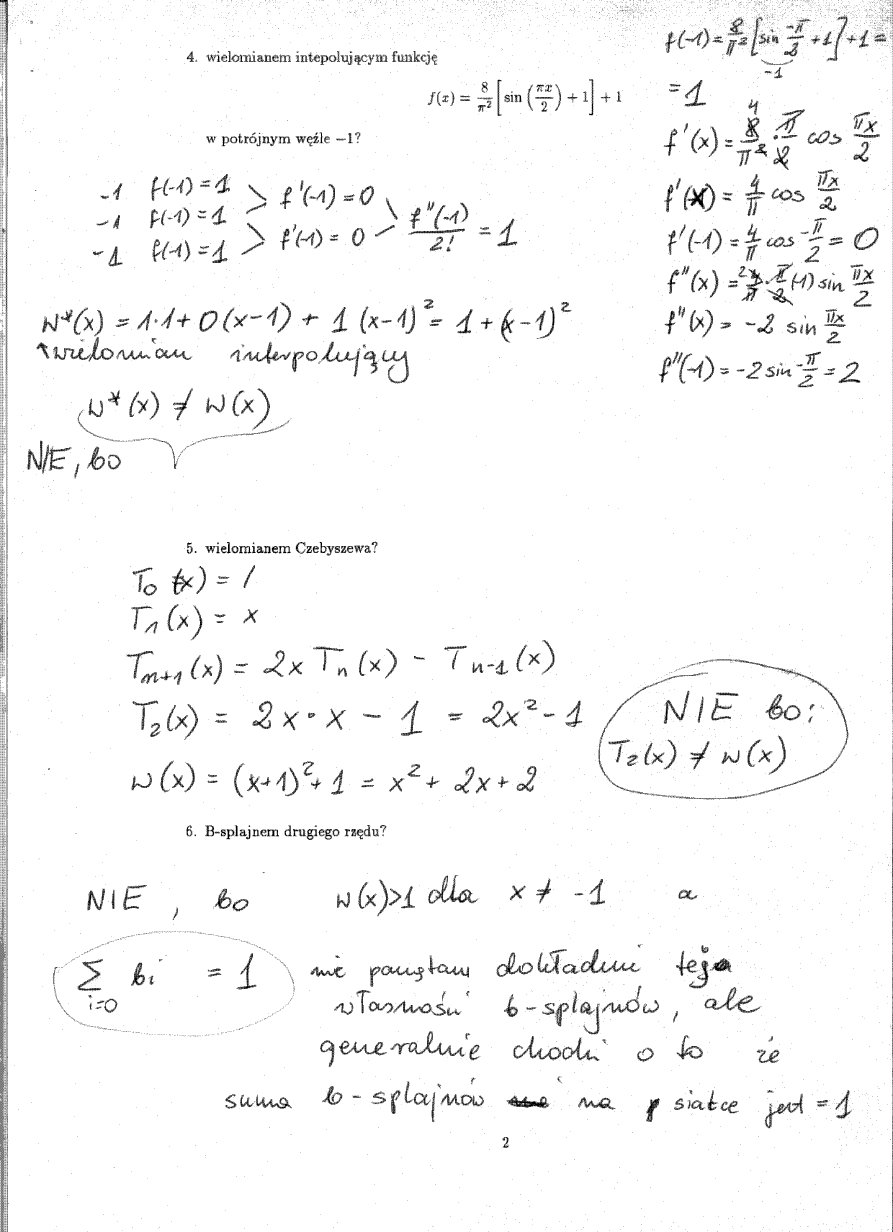 4. wielomianem intepolującym funkcję
f(x) = 8/π² [sin (πx/2) + 1] + 1
w potrójnym węźle −1?
f(-1) = 8/π² [sin -π/2 + 1] + 1 =
-1
= 1
f'(x) = 8/π² · π/2 cos πx/2
4
f'(x) = 4/π cos πx/2
f'(-1) = 4/π cos -π/2 = 0
f''(x) = 2 4/π · π/2 (-1) sin πx/2
f''(x) = -2 sin πx/2
f''(-1) = -2 sin -π/2 = 2
-1 f(-1) = 1 > f'(-1) = 0
-1 f(-1) = 1 \ f''(-1)/2! = 1
-1 f(-1) = 1 > f'(-1) = 0 /
w*(x) = 1·1 + 0(x-1) + 1(x-1)² = 1 + (x-1)²
↑ wielomian interpolujący
w*(x) ≠ w(x)
NIE, bo
5. wielomianem Czebyszewa?
T₀(x) = 1
T₁(x) = x
Tn+1(x) = 2x Tn(x) - Tn-1(x)
T₂(x) = 2x · x - 1 = 2x² - 1
NIE bo:
T₂(x) ≠ w(x)
w(x) = (x+1)² + 1 = x² + 2x + 2
6. B-splajnem drugiego rzędu?
NIE, bo w(x)>1 dla x ≠ -1 a
∑ i=0 bi = 1 nie pamiętam dokładnie tej
własności b-splajnów, ale
generalnie chodzi o to że
suma b-splajnów na siatce jest = 1
2